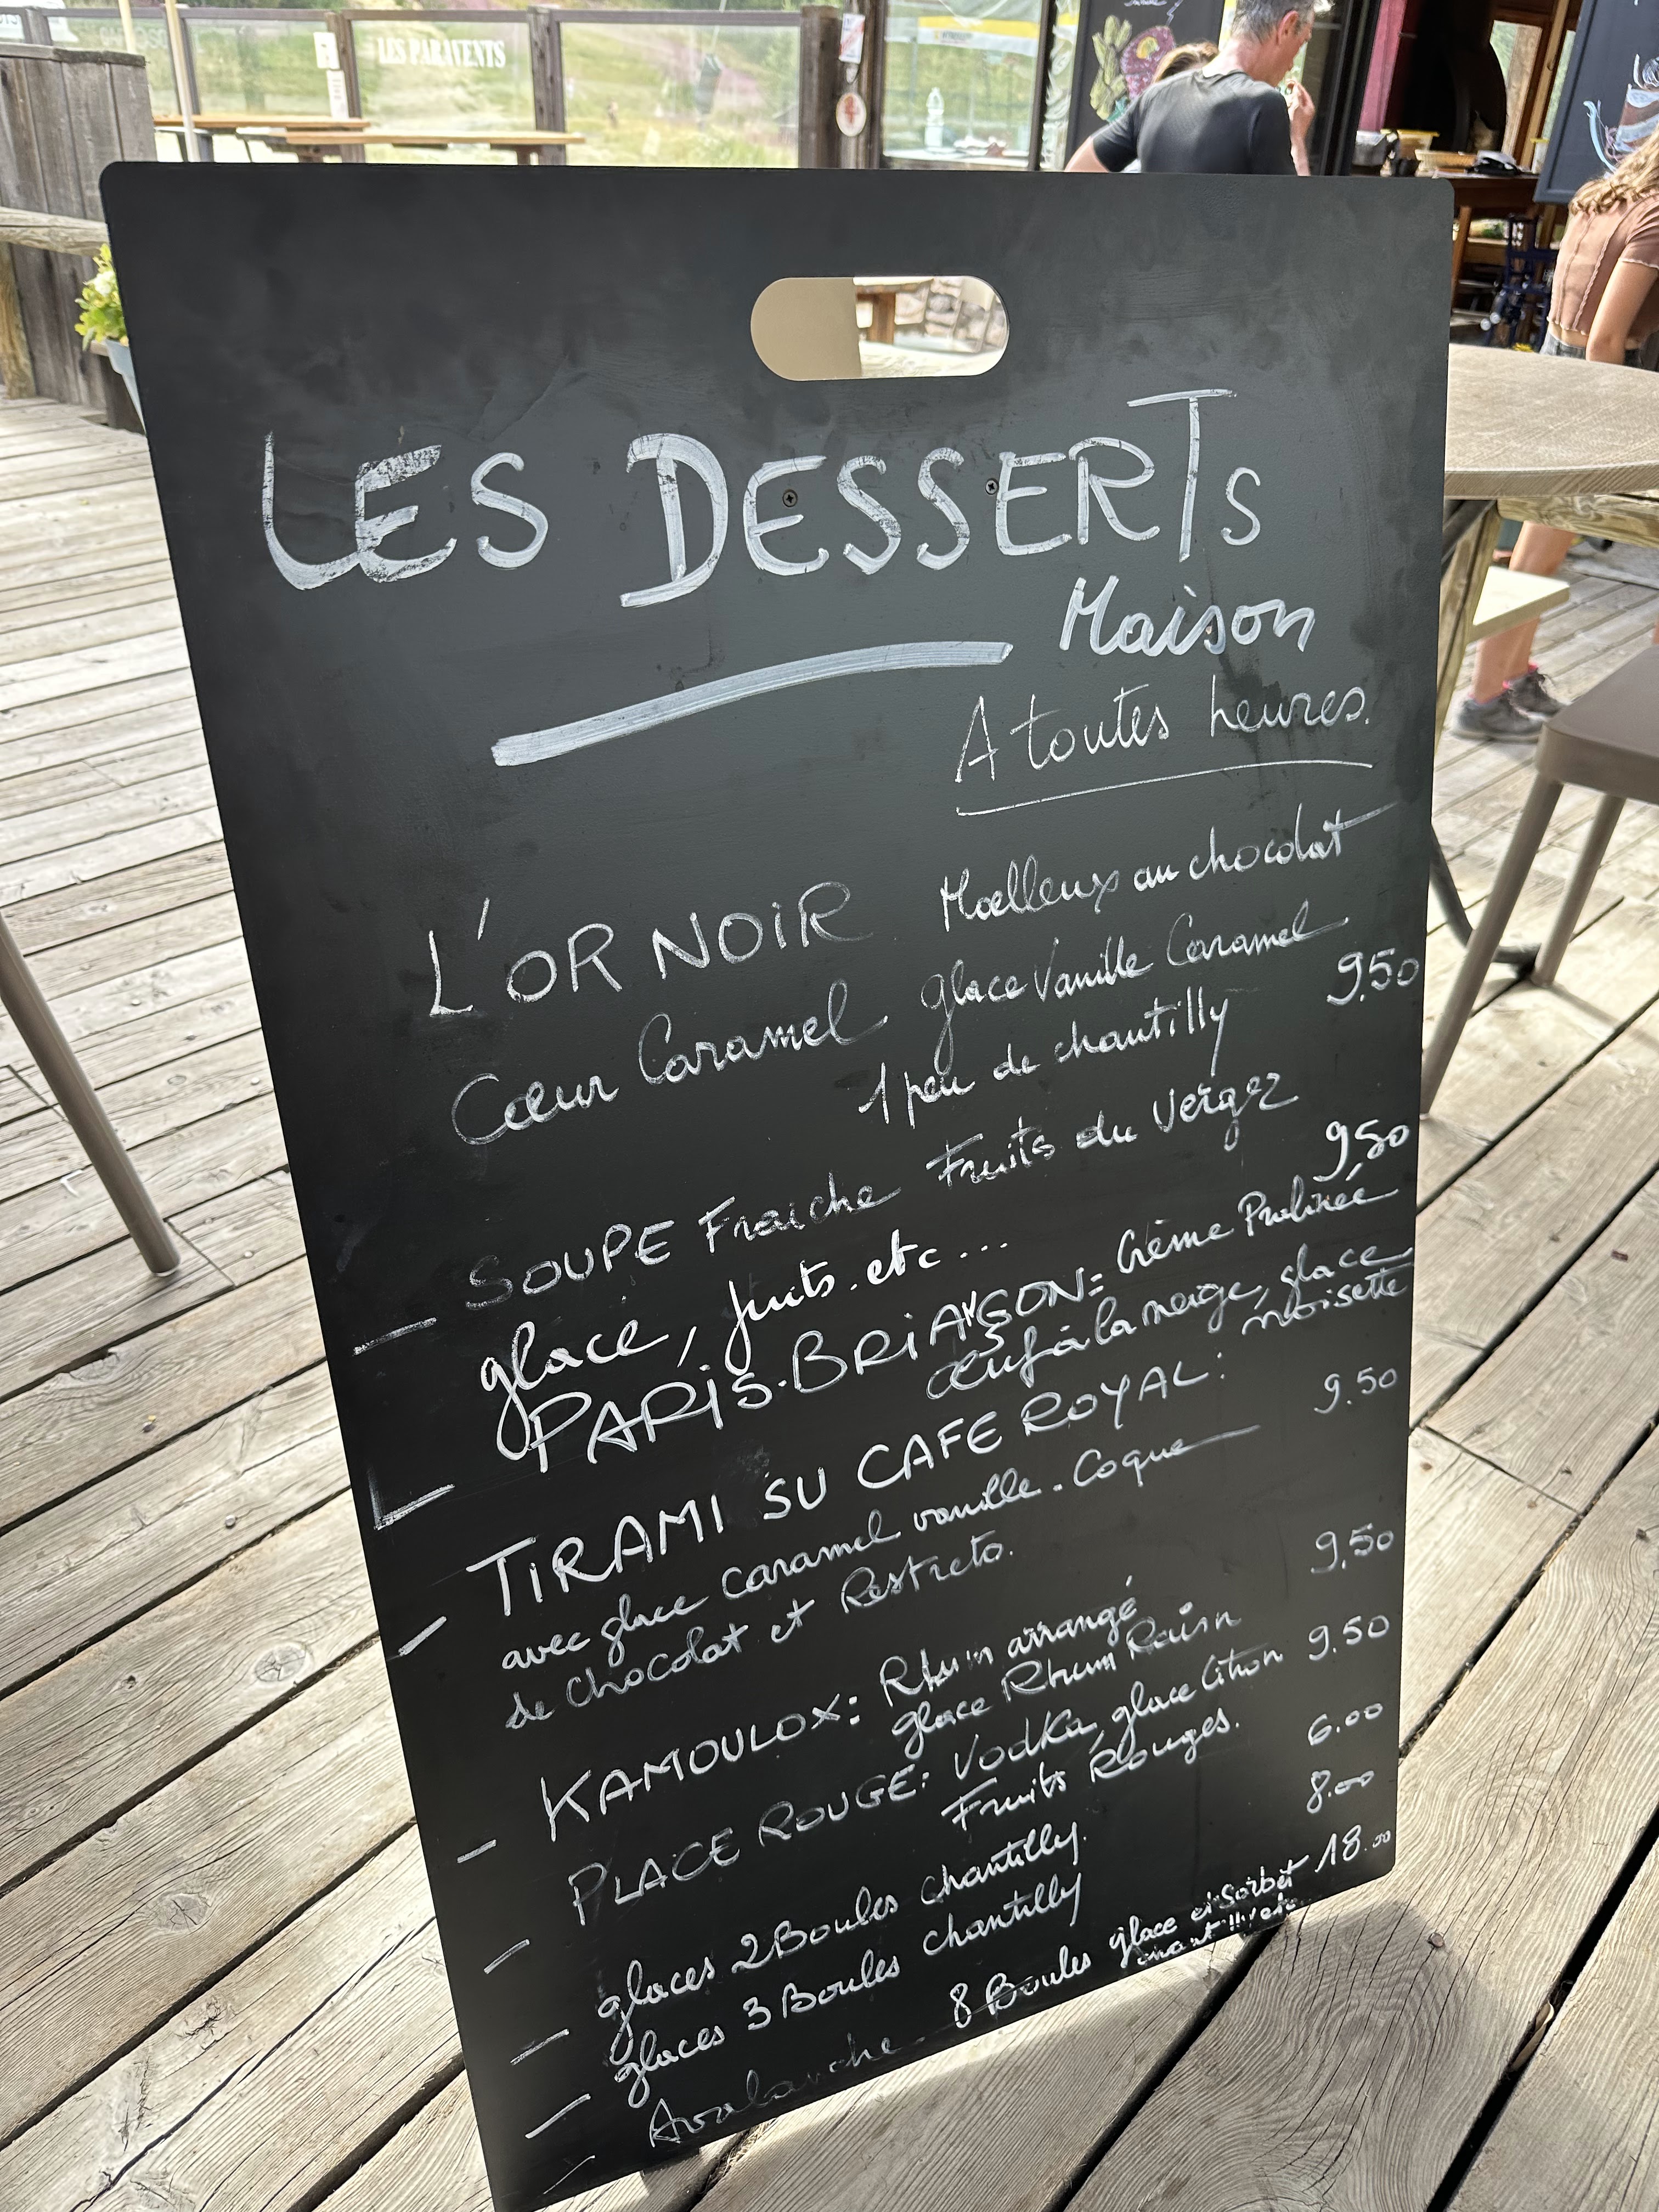 LES PARAVENTS
LES DESSERTs
Maison
A toutes heures.
L'OR NOIR Moelleux au chocolat
Cœur Caramel glace Vanille Caramel
1 peu de chantilly 9.50
- SOUPE Fraiche Fruits du Verger
glace, fruits. etc ... 9,50
- PARIS-BRIANÇON: Crème Pralinée
œuf à la neige, glace
noisette
- TIRAMI SU CAFE ROYAL: 9.50
avec glace caramel vanille. Coque
de chocolat et Restreto.
- KAMOULOX: Rhum arrangé 9,50
glace Rhum Raisin
- PLACE ROUGE: Vodka, glace Citron 9.50
Fruits Rouges.
- glaces 2 Boules chantilly. 6.00
- glaces 3 Boules chantilly 8.00
- Avalanche - 8 Boules glace et Sorbet 18.00